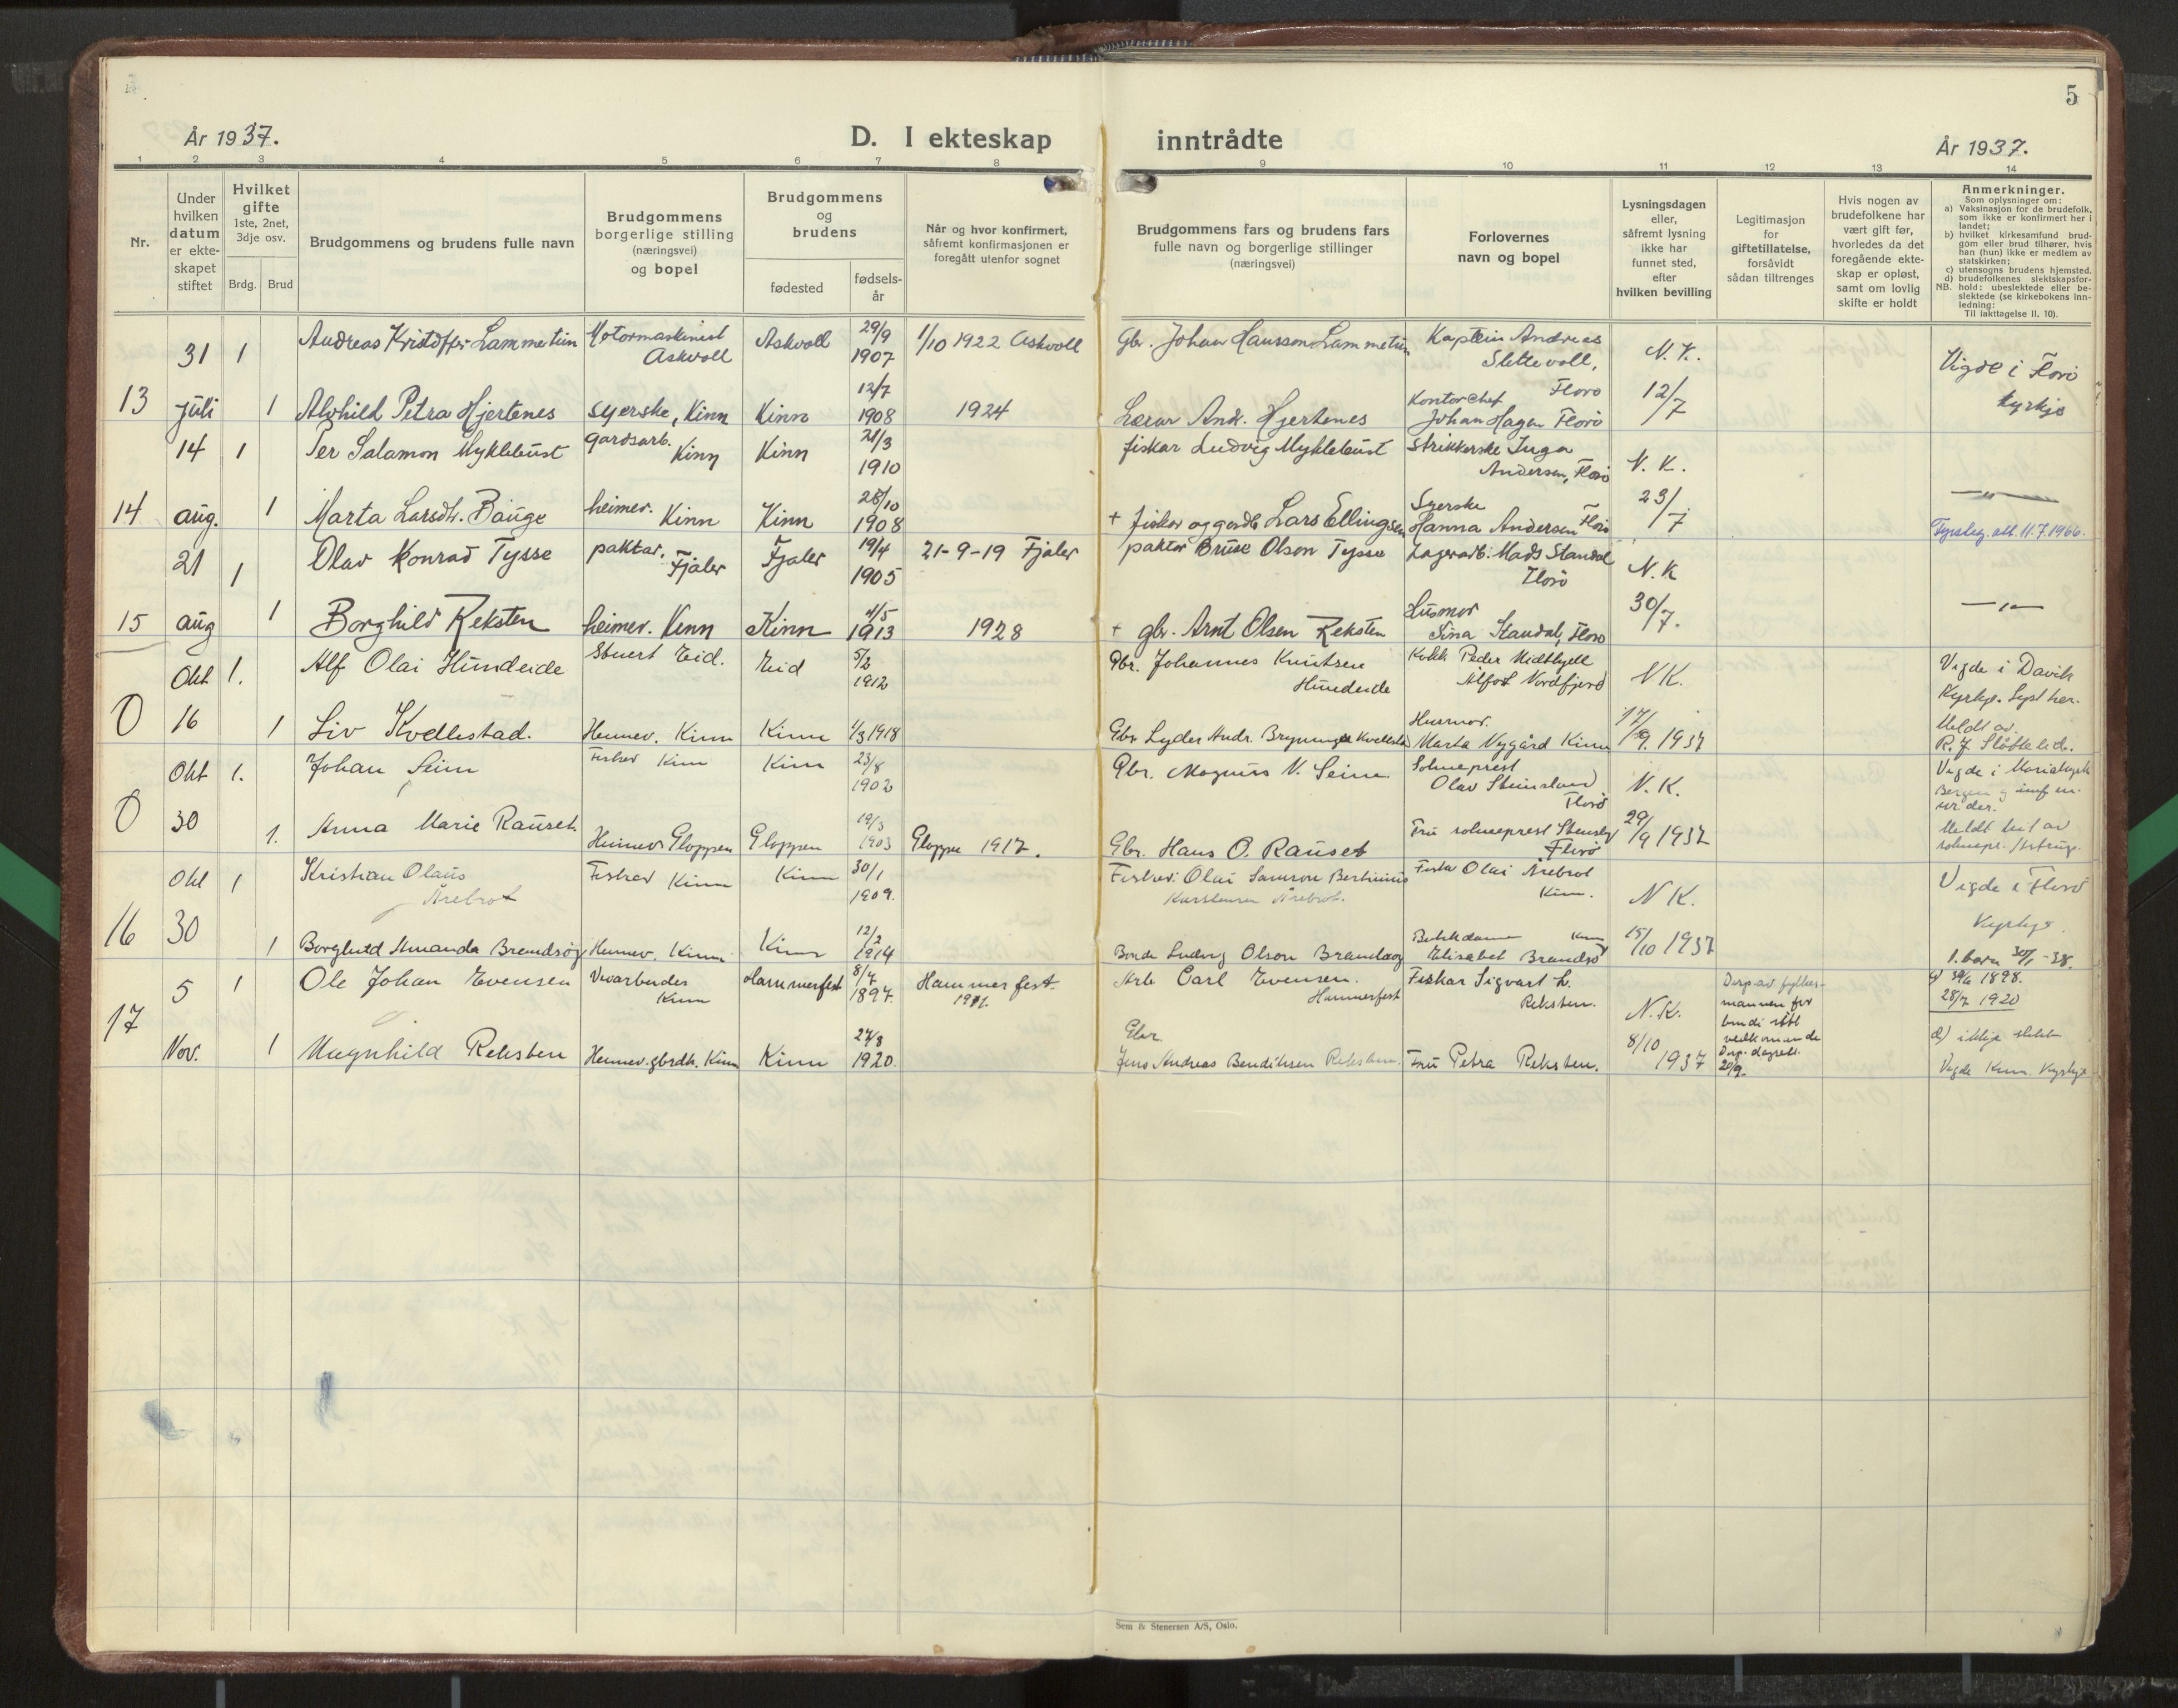 5
År 1937.
D. I ekteskap
inntrådte
År 1937.
1 2 3 4 5 6 7 8 9 10 11 12 13 14
Nr.
Under
hvilken
datum
er ekte-
skapet
stiftet
Hvilket
gifte
1ste, 2net,
3dje osv.
Brdg. Brud
Brudgommens og brudens fulle navn
Brudgommens
borgerlige stilling
(næringsvei)
og bopel
Brudgommens
og
brudens
fødested
fødsels-
år
Når og hvor konfirmert,
såfremt konfirmasjonen er
foregått utenfor sognet
Brudgommens fars og brudens fars
fulle navn og borgerlige stillinger
(næringsvei)
Forlovernes
navn og bopel
Lysningsdagen
eller,
såfremt lysning
ikke har
funnet sted,
efter
hvilken bevilling
Legitimasjon
for
giftetillatelse,
forsåvidt
sådan tiltrenges
Hvis nogen av
brudefolkene har
vært gift før,
hvorledes da det
foregående ekte-
skap er opløst,
samt om lovlig
skifte er holdt
Anmerkninger.
Som oplysninger om:
a) Vaksinasjon for de brudefolk,
som ikke er konfirmert her i
landet;
b) hvilket kirkesamfund brud-
gom eller brud tilhører, hvis
han (hun) ikke er medlem av
statskirken;
c) utensogns brudens hjemsted.
d) brudefolkenes slektskapsfor-
NB. hold: ubeslektede eller be-
slektede (se kirkebokens inn-
ledning:
Til iakttagelse II. 10).
31 1 Andreas Kristoffer Lammetun Motormaskinist Askvoll Askvoll 29/9 1907 1/10 1922 Askvoll Gbr. Johan Hansson Lammetun Kaptein Andreas Slettevoll, Florø N. K. Vigde i Florø kyrkje
13 juli 1 Alvhild Petra Hjertenes syerske, Kinn Kinn 12/7 1908 1924 Lærar And. Hjertenes Kontorchef Johan Hagen Florø 12/7
14 1 Per Salamon Myklebust gardsarb. Kinn Kinn 21/3 1910 fiskar Ludvig Myklebust Strikkerske Inga Andersen, Florø N. K.
14 aug. 1 Marta Larsdtr. Bauge heimev. Kinn Kinn 28/10 1908 + fiskar og gardb. Lars Ellingsen Syerske Hanna Andersen Florø 23/7 — " — 11.7.1966.
21 1 Olav Konrad Tysse paktar. Fjaler Fjaler 19/4 1905 21-9-19 Fjaler paktar Bruse Olson Tysse Lagerarb. Mads Standal Florø N. K
15 aug 1 Borghild Reksten heimev. Kinn Kinn 4/5 1913 1928 + gbr. Arnt Olsen Reksten Husmor Sina Standal, Florø 30/7. — " —
Okt 1. Alf Olai Hundeide Stuert Eid. Eid 5/2 1912 Gbr. Johannes Knutsen Hundeide Kokk Peder Midthjell Ålfot Nordfjord N K. Vigde i Davik Kyrkje. Lyst her.
0 16 1 Liv Kvellestad. Heimev. Kinn Kinn 1/3 1918 Gbr Lyder Andr. Husmor. Marta Nygård Kinn 17/9 1937 Meldt av
Okt 1. Johan Seim Fiskar Kinn Kinn 23/8 1902 Gbr. Magnus N. Seim Sokneprest Olav Steinsland Florø N. K. Vigde i Mariakyrk Bergen
0 30 1. Anna Marie Rauset Heimev Gloppen Gloppen 1903 Gloppen 1917. Gbr. Hans O. Rauset Fru sokneprest Florø 29/9 1937 Meldt hit av
Okt 1 Kristian Olaus Årebrot Fiskar Kinn Kinn 30/1 1909. Fiskar. Olai Samson Bertinius Karstensen Årebrot. Olai Årebrot Kinn. N K. Vigde i Florø Kyrkje.
16 30 1 Borghild Amanda Brandsøy Heimev. Kinn Kinn 12/2 1914 Bonde Ludvig Olson Brandsøy Butikkdame Kinn Elisabet Brandsøy 15/10 1937 1. barn 30/1 -38.
5 1 Ole Johan Evensen Kinn Hammerfest 8/7 1897. Hammerfest. Arb Carl Evensen. Hammerfest Fiskar Sigvart L. Reksten. N. K. Disp. av fylkes- mannen for 1898. 28/7 1920
17 Nov. 1 Magnhild Reksten Heimev. gbrdt. Kinn Kinn 27/8 1920. Gbr. Jens Andreas Bendiksen Reksten. Fru Petra Reksten. 8/10 1937 Disp. 20/9. d) ikkje Vigde Kinn Kyrkje
Sem & Stenersen A/S, Oslo.